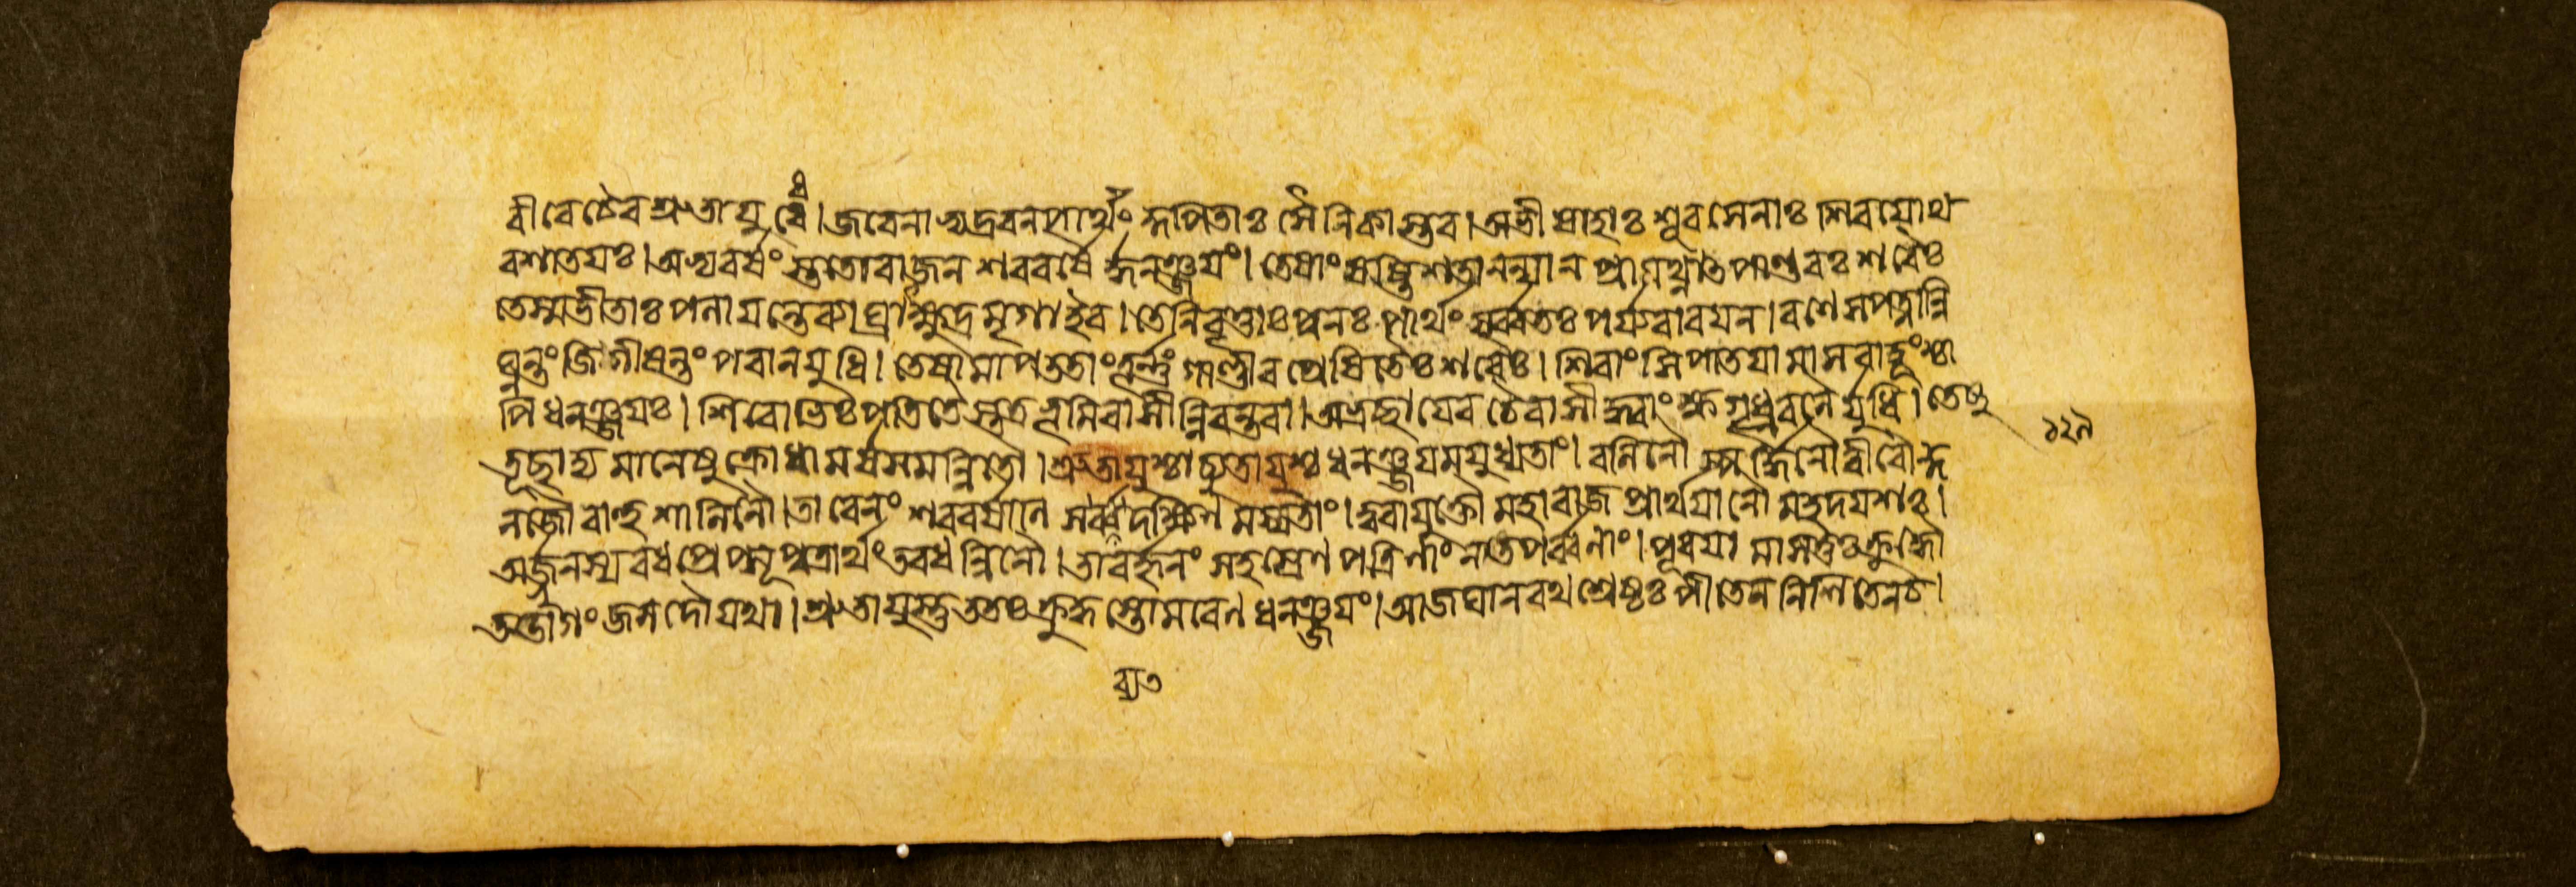 বীরে চৈব শ্রুতায়ুধে। জবেনাভ্যদ্রবন পার্থং কুপিতাঃ সৈনিকাস্তব। অভীষাহাঃ শূরসেনাঃ শিবয়োথ
বশাতয়ঃ। অভ্যবর্ষং স্ততো রাজন শরবর্ষে র্দ্ধনঞ্জয়ং। তেষাং ষষ্টিশতানন্যান প্রামথ্নাৎ পাণ্ডবঃ শরৈঃ
তেস্মভীতাঃ পলায়ন্তে ব্যাঘ্রাৎ ক্ষুদ্রমৃগা ইব। তে নিবৃত্তাঃ পুনঃ পার্থং সর্ব্বতঃ পর্য্যবারয়ন। রণে সপত্নান্নি
ঘ্নন্তং জিগীষন্তং পরানযুধি। তেষামাপততাং তূর্ন্নং গাণ্ডীব প্রেষিতৈঃ শরৈঃ। শিরাংসি পাতয়ামাস বাহূংশ্চা
পি ধনঞ্জয়ঃ। শিরোভিঃ পতিতৈ স্তত্র ভূমিরাসীন্নিরন্তরা। অভ্রছায়েব চৈবাসীৎ ধ্বাংক্ষ গৃধ্রবলৈ র্যুধি। তেষু ১২৯
তূছাদ্যমানেষু ক্রোধামর্ষসমন্বিতৌ। শ্রুতায়ুশ্চাচ্যুতায়ুশ্চ ধনঞ্জয়মযুধ্যতাং। বলিনৌ স্পর্দ্ধিনৌ বীরৌ কু
লজৌ বাহুশালিনৌ। তাবেনং শরবর্ষাণি সব্যদক্ষিণ মস্যতাং। ত্বরাযুক্তৌ মহারাজ প্রার্থয়ানৌ মহদযশঃ।
অর্জ্জুনস্য বধপ্রেপ্সূ পুত্রার্থং তব ধন্বিনৌ। তাবর্জ্জুনং সহস্রেণ পত্রিণাং নতপর্ব্বণাং। পূরয়ামাসতুঃ ক্রুদ্ধৌ
তড়াগং জলদৌ যথা। শ্রুতায়ুস্তু ততঃ ক্রুদ্ধ স্তোমরেণ ধনঞ্জয়ং। আজঘান রথশ্রেষ্ঠঃ পীতেন নিশিতেন চ।